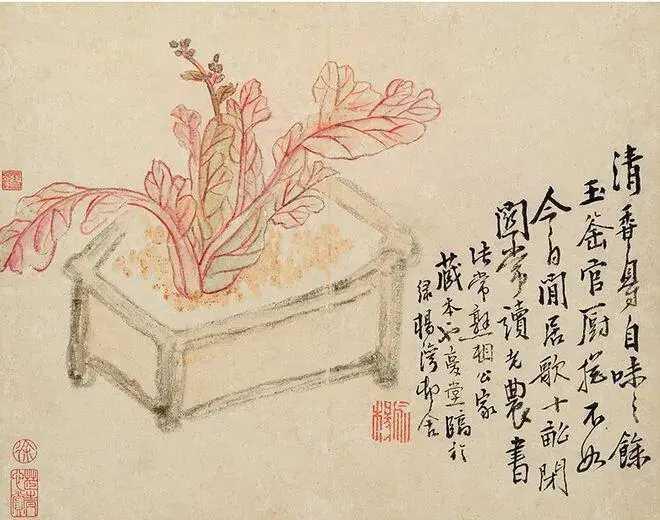 清香身自味之餘
玉釜官厨摠不如
今日閒居歌十畝閉
關常讀老農書
法常熟相公家
藏本也 堂臨於
綠楊灣邨舍